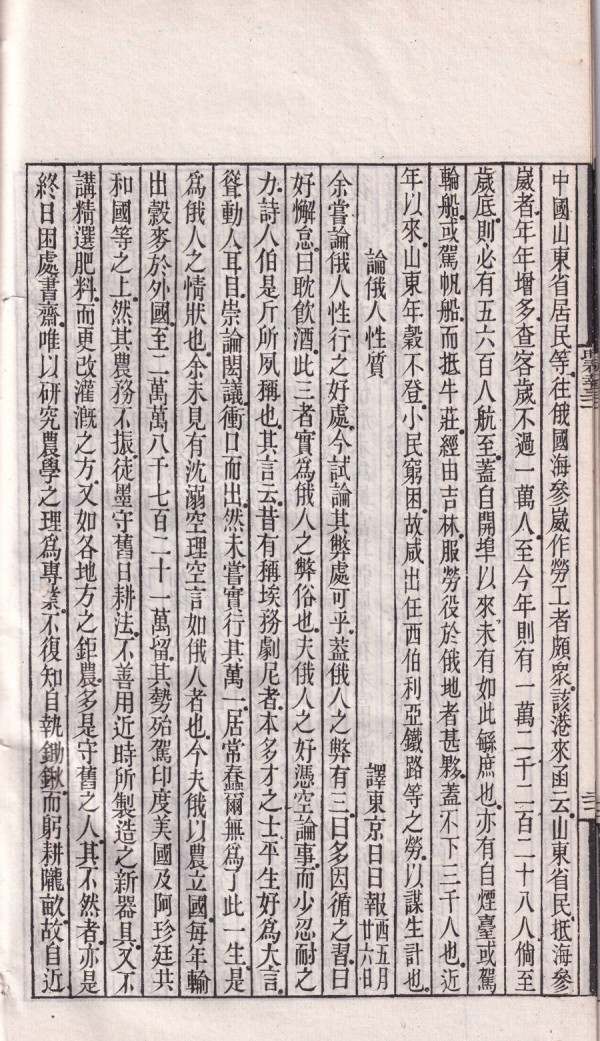 中國山東省居民等往俄國海參崴作勞工者頗衆該港來函云山東省民抵海參
崴者年年增多查客歲不過一萬人至今年則有一萬二千二百二十八人倘至
歲底則必有五六百人航至蓋自開埠以來未有如此緐庶也亦有自煙臺或駕
輪船或駕帆船而抵牛莊經由吉林服勞役於俄地者甚夥蓋不下三千人也近
年以來山東年穀不登小民窮困故咸出任西伯利亞鐵路等之勞以謀生計也
論俄人性質 譯東京日日報 西五月廿六日
余嘗論俄人性行之好處今試論其弊處可乎蓋俄人之弊有三曰多因循之習曰
好懈怠曰耽飲酒此三者實爲俄人之弊俗也夫俄人之好憑空論事而少忍耐之
力詩人伯是斤所夙稱也其言云昔有稱埃務劇尼者本多才之士平生好爲大言
聳動人耳目崇論閎議衝口而出然未嘗實行其萬一居常蠢爾無爲了此一生是
爲俄人之情狀也余未見有沈溺空理空言如俄人者也今夫俄以農立國每年輸
出穀麥於外國至二萬萬八千七百二十一萬留其勢殆駕印度美國及阿珍廷共
和國等之上然其農務不振徒墨守舊日耕法不善用近時所製造之新器具又不
講精選肥料而更改灌漑之方又如各地方之鉅農多是守舊之人其不然者亦是
終日困處書齋唯以研究農學之理爲專業不復知自執鋤鍬而躬耕隴畝故自近